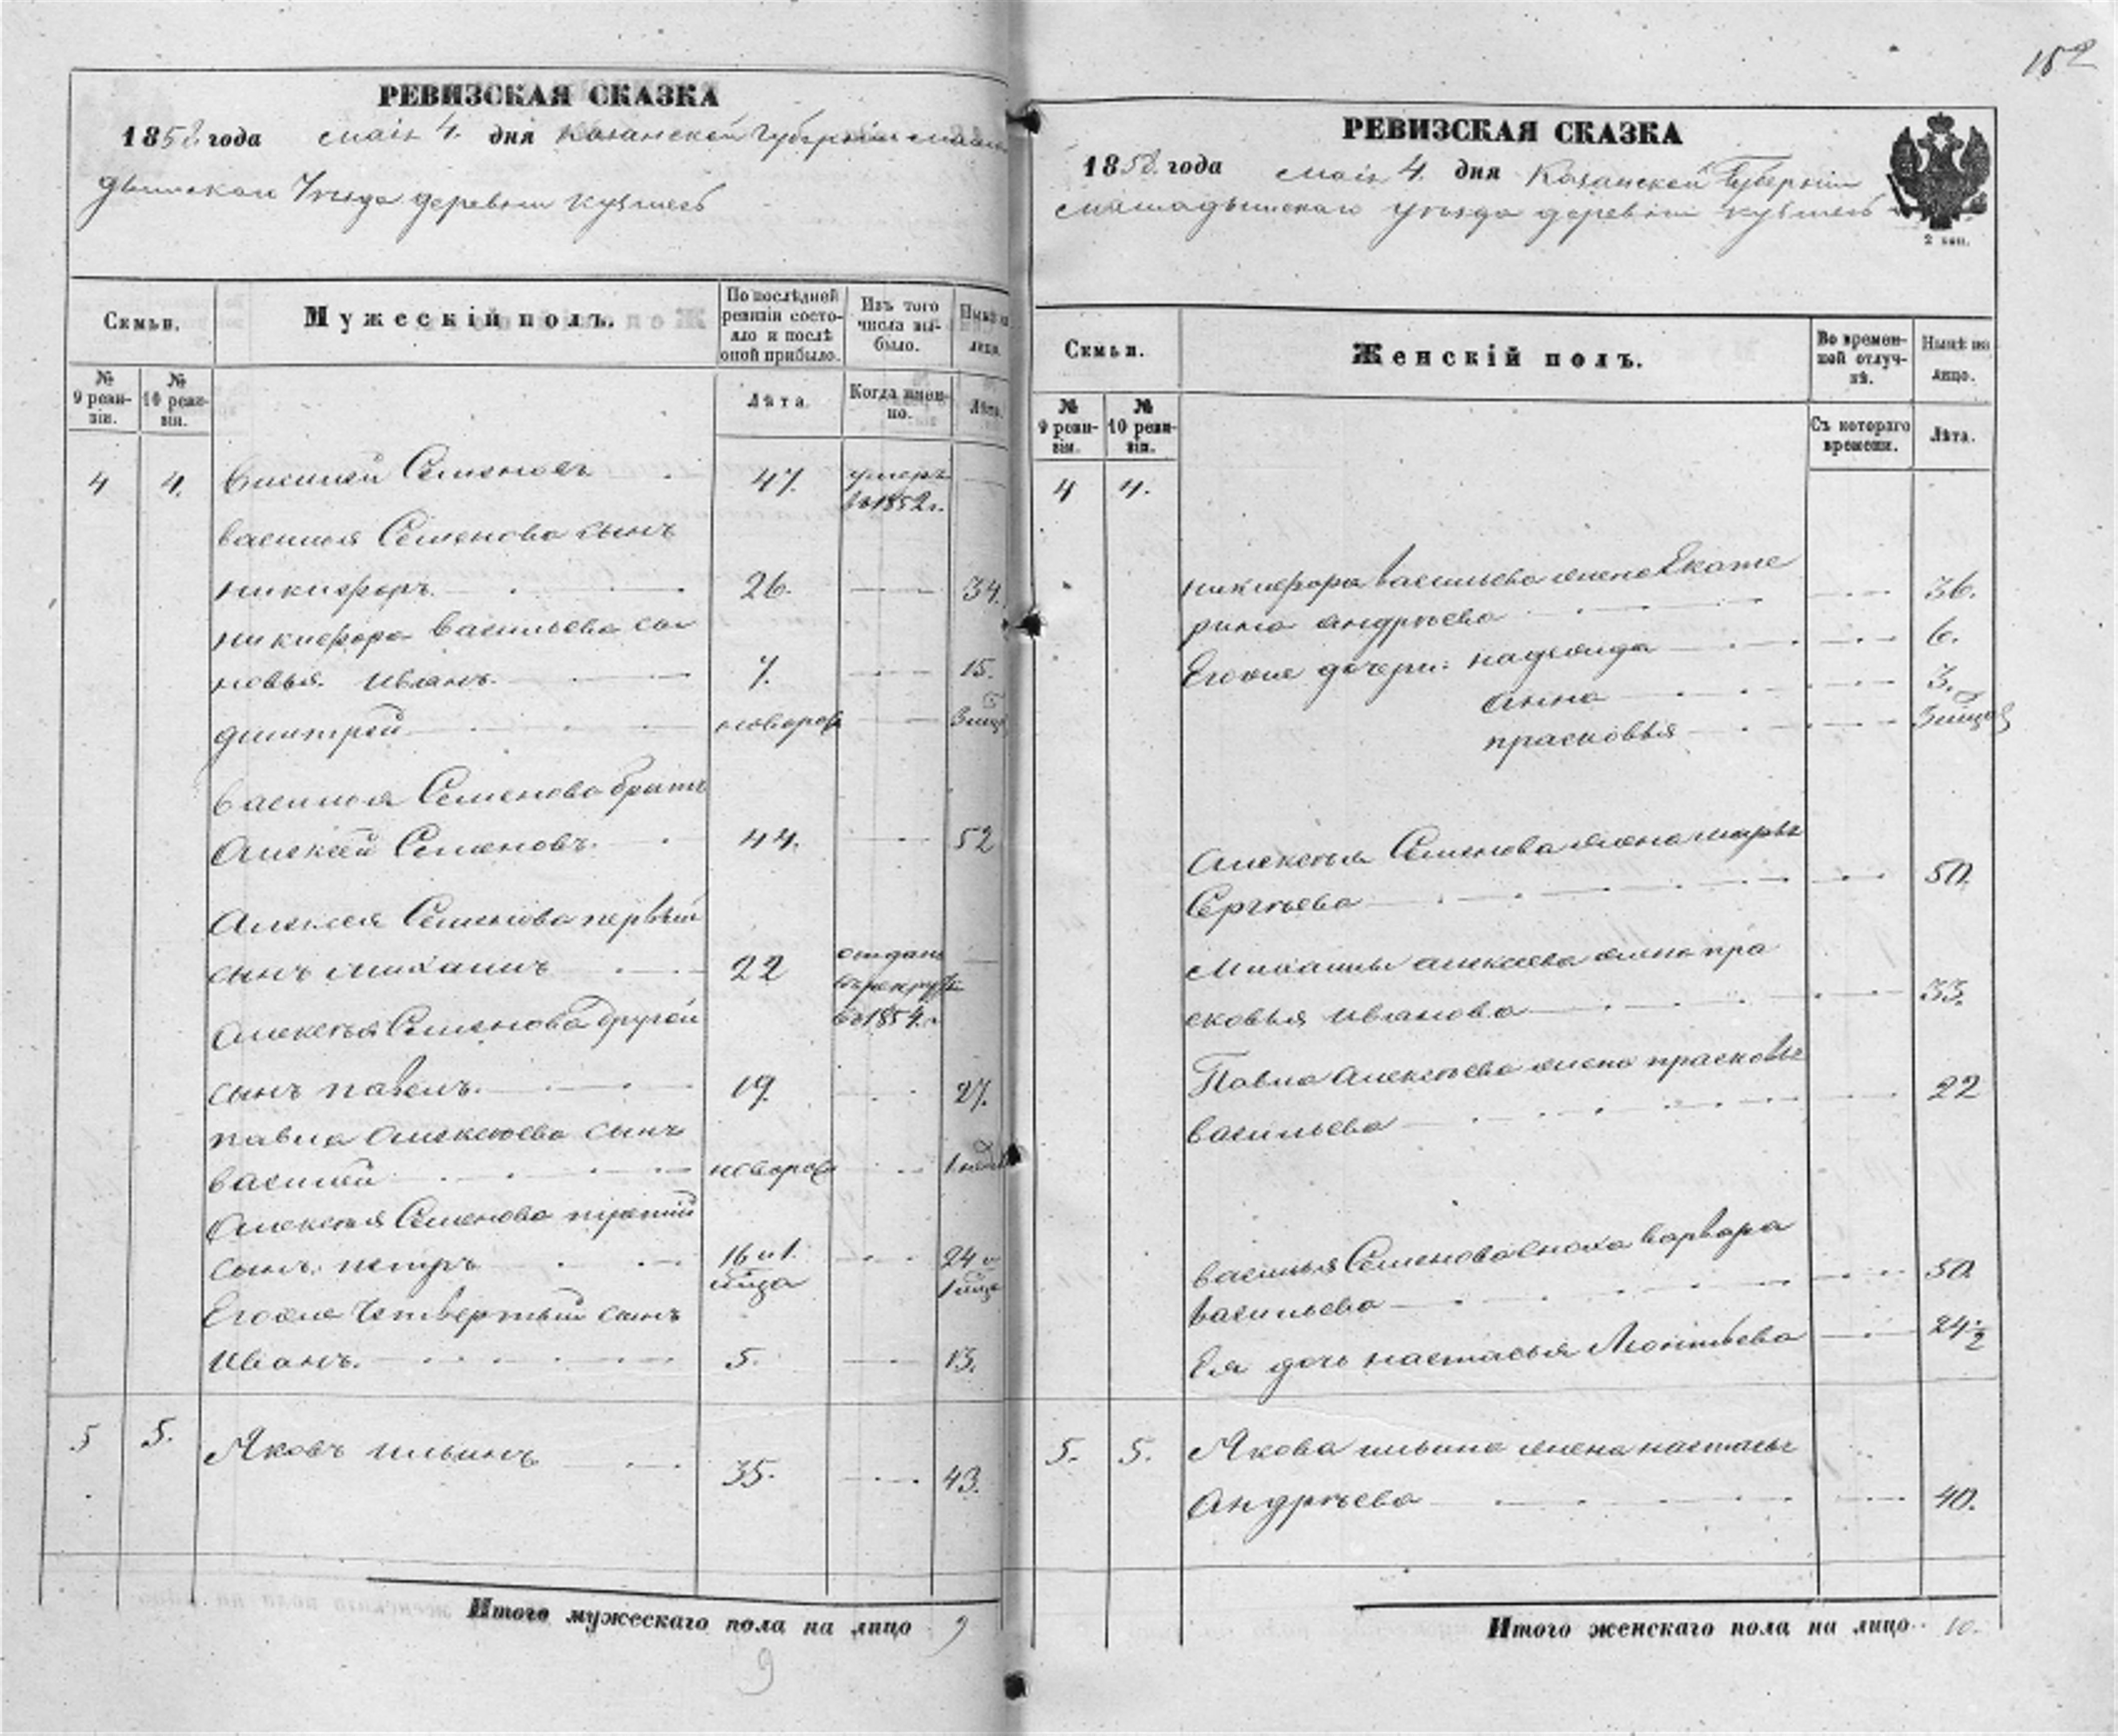 РЕВИЗСКАЯ СКАЗКА
1858 года маія 4. дня Казанской Губерніи мама
дышскаго Уезда деревни
Семьи.
Мужескій полъ.
По послѣдней ревизіи состояло и послѣ оной прибыло.
Изъ того числа выбыло.
Нынѣ на лицо.
№ 9 ревизіи.
№ 10 ревизіи.
Лѣта.
Когда именно.
Лѣта.
4 4. Василей Семеновъ 47. умеръ
въ 1852 г.
василья Семенова сынъ
никифоръ. 26. 34.
никифора васильева сы
новья иванъ. 7. 15.
димитрей новорож 3 мцѣ
василья Семенова братъ
Алексей Семеновъ. 44. 52
Алексея Семенова первый
сынъ михаилъ 22 отданъ
въ рекруты
въ 1854. г
Алексѣя Семенова другой
сынъ павелъ. 19. 27.
павла Алексѣева сынъ
василей новорож 1 нед
Алексѣя Семенова третий
сынъ петръ 16 и 1. 24 и
мца 1 мца
Егоже Четвертый сынъ
Иванъ. 5. 13.
5 5. Яковъ ильинъ 35. 43.
Итого мужескаго пола на лицо 9
9
152
РЕВИЗСКАЯ СКАЗКА
1858. года маія 4. дня Казанской Губерніи
мамадышскаго уезда деревни
2 коп.
Семьи.
Женскій полъ.
Во временной отлучкѣ.
Нынѣ на лицо.
№ 9 ревизіи.
№ 10 ревизіи.
Съ котораго времени.
Лѣта.
4 4.
никифора васильева жена Екате
рина андрѣева 36.
Егоже дочери: надежда 6.
анна 3.
прасковья 3 мцов
Алексѣя Семенова жена марья
Сергѣева 50.
Михаилы алексеева жена пра
сковья иванова 33.
Павла Алексѣева жена прасковья
васильева 22
василья Семенова сноха варвара
васильева 50.
Ея дочь настасья Леонтьева 24 1/2
5. 5. Якова ильина жена настасья
Андрѣева 40.
Итого женскаго пола на лицо 10.